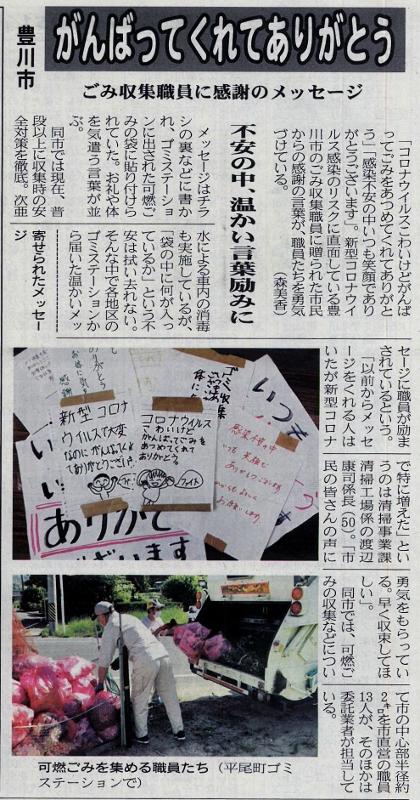 豊川市
がんばってくれてありがとう
ごみ収集職員に感謝のメッセージ
不安の中、温かい言葉励みに
「コロナウイルスこわいけどがんば
ってごみをあつめてくれてありがと
う」「感染不安の中いつも笑顔であり
がとうございます」。新型コロナウイ
ルス感染のリスクに直面している豊
川市のごみ収集職員に贈られた市民
からの感謝の言葉が、職員たちを勇気
づけている。
（森美香）
メッセージはチラ
シの裏などに書か
れ、ゴミステーショ
ンに出された可燃ご
みの袋に貼り付けら
れていた。お礼や体
を気遣う言葉が並
ぶ。
同市では現在、普
段以上に収集時の安
全対策を徹底。次亜
水による車内の消毒
も実施しているが、
「袋の中に何が入っ
ているか」という不
安は拭い去れない。
そんな中で各地区の
ゴミステーションか
ら届いた温かいメッ
セージに職員が励ま
されているという。
「以前からメッセ
ージをくれる人は
いたが新型コロナ
で特に増えた」とい
うのは清掃事業課
清掃工場係の渡辺
康司係長（50）。「市
民の皆さんの声に
勇気をもらってい
る。早く収束してほ
しい」。
同市では、可燃ご
みの収集などについ
て市の中心部半径約
2㌔を市直営の職員
13人が、そのほかは
委託業者が担当して
いる。
寄せられたメッセージ
新型コロナ
ウイルスで大変
なのにがんばってくれ
てありがとうござい
コロナウイルス
こわいけど
がんばってごみを
あつめてくれて
ありがとう
ファイト
ゴミ収集
いつも
感染不安の中
いつも笑顔で
ありがとうございます
ありがとう
ございます
可燃ごみを集める職員たち（平尾町ゴミ
ステーションで）